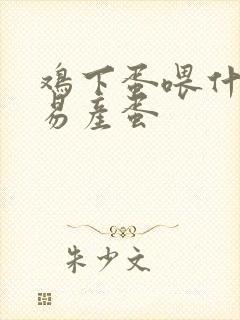 鸡下蛋喂什
易产蛋
朱少文